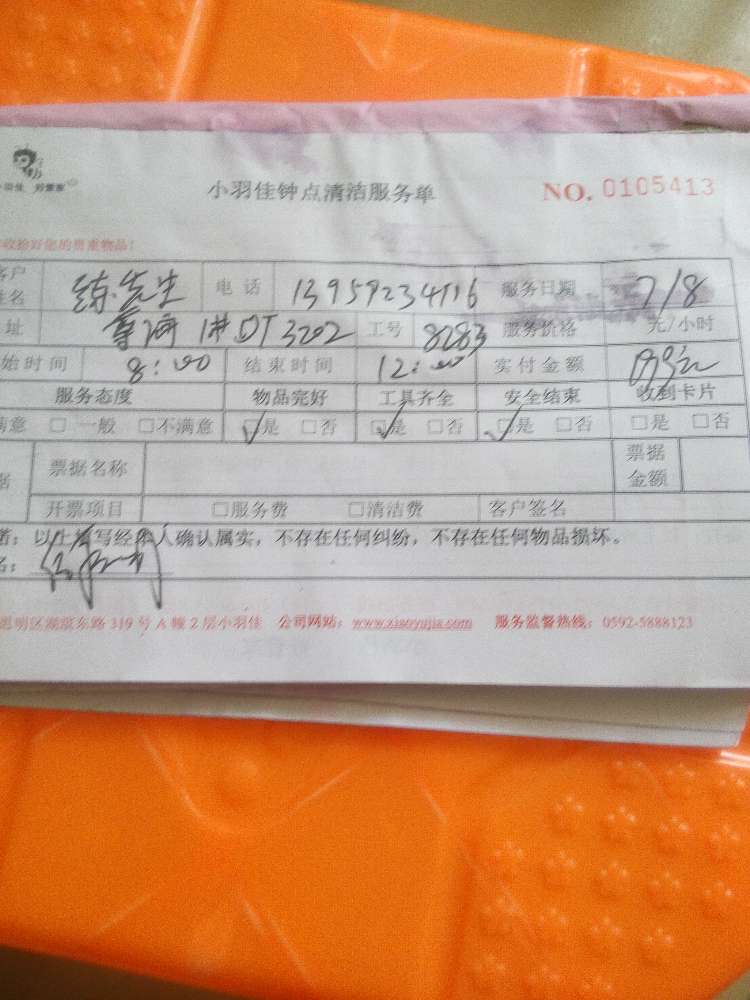 小羽佳钟点清洁服务单 NO. 0105413
收拾好您的贵重物品!
客户姓名 练先生 电话 13959234116 服务日期 7/8
址 1# DT 3202 工号 8283 服务价格 元/小时
始时间 8:00 结束时间 12:00 实付金额
服务态度 物品完好 工具齐全 安全结束 收到卡片
满意 □ 一般 □不满意 ☑是 □否 ☑是 □否 ☑是 □否 □是 □否
票据名称 票据金额
开票项目 □服务费 □清洁费 客户签名
诺:以上填写经本人确认属实,不存在任何纠纷,不存在任何物品损坏。
名:
思明区湖滨东路 319 号 A 幢 2 层小羽佳 公司网站:www.xiaoyujia.com 服务监督热线:0592-5888123